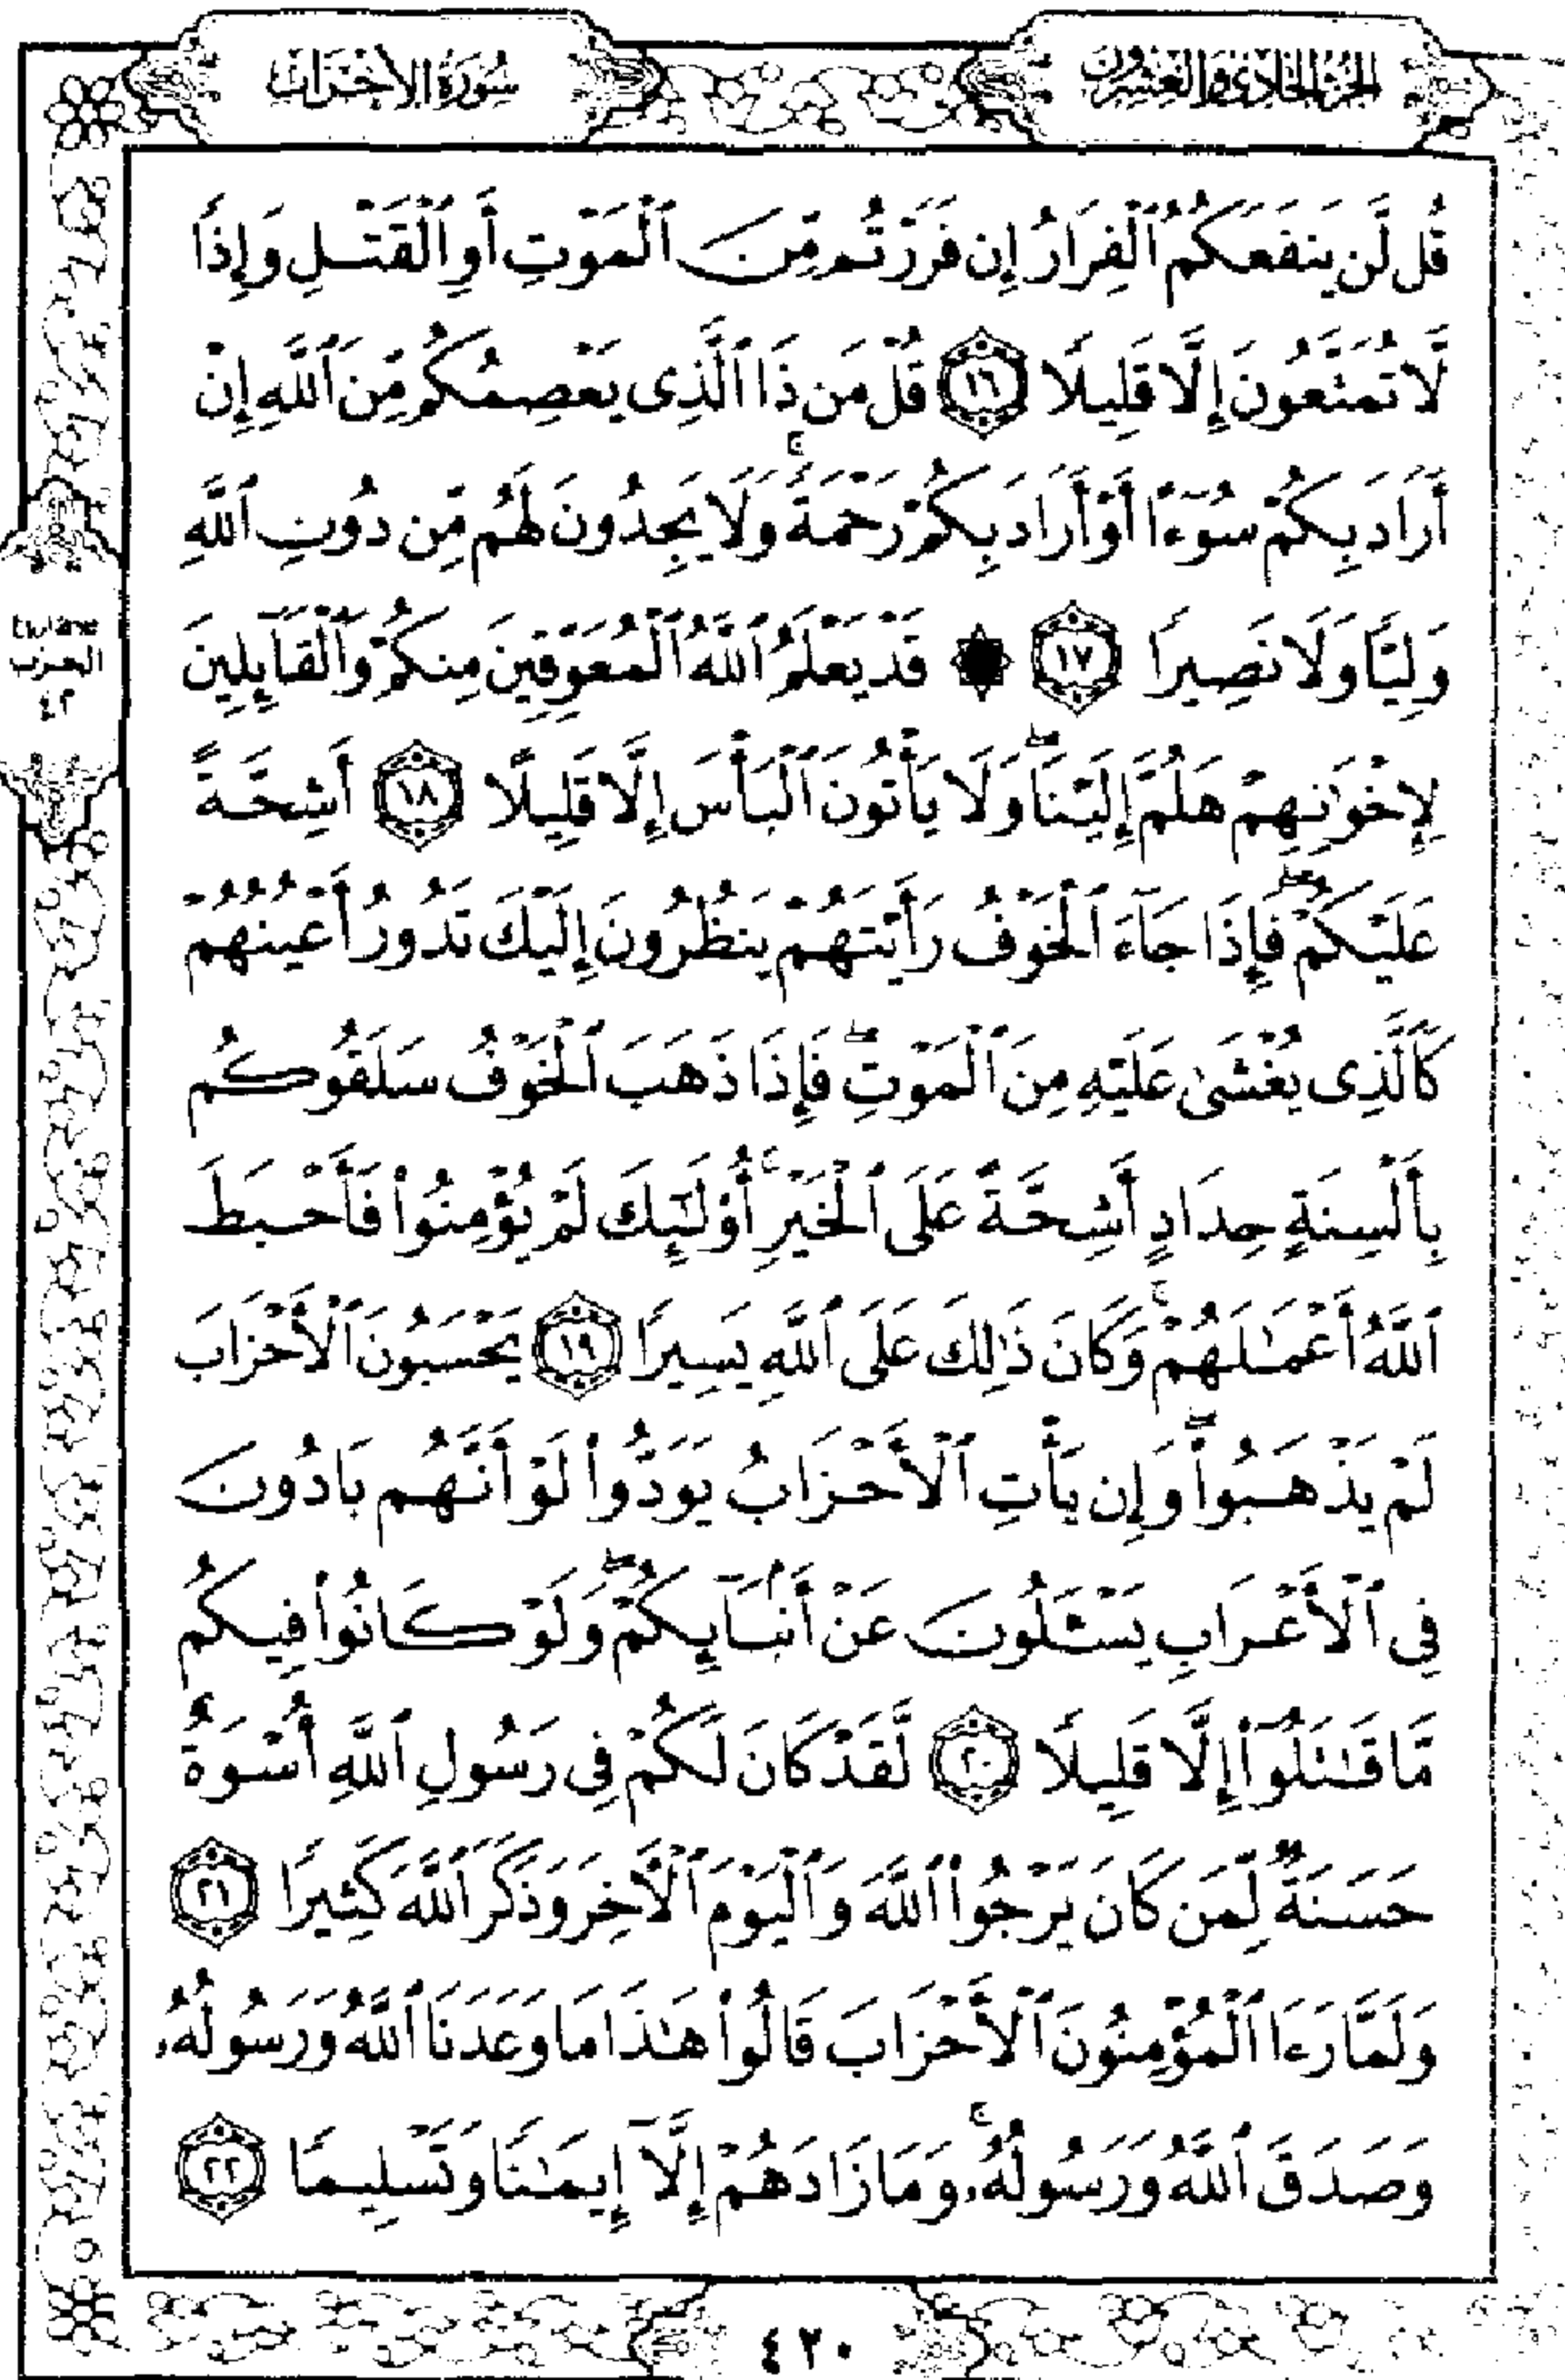 الجزء الحادي والعشرون
سورة الأحزاب
قُل لَّن يَنفَعَكُمُ ٱلْفِرَارُ إِن فَرَرْتُم مِّنَ ٱلْمَوْتِ أَوِ ٱلْقَتْلِ وَإِذًا
لَّا تُمَتَّعُونَ إِلَّا قَلِيلًا ١٦ قُلْ مَن ذَا ٱلَّذِى يَعْصِمُكُم مِّنَ ٱللَّهِ إِنْ
أَرَادَ بِكُمْ سُوٓءًا أَوْ أَرَادَ بِكُمْ رَحْمَةً ۚ وَلَا يَجِدُونَ لَهُم مِّن دُونِ ٱللَّهِ
وَلِيًّا وَلَا نَصِيرًا ١٧ ۞ قَدْ يَعْلَمُ ٱللَّهُ ٱلْمُعَوِّقِينَ مِنكُمْ وَٱلْقَآئِلِينَ
لِإِخْوَٰنِهِمْ هَلُمَّ إِلَيْنَا ۖ وَلَا يَأْتُونَ ٱلْبَأْسَ إِلَّا قَلِيلًا ١٨ أَشِحَّةً
عَلَيْكُمْ ۖ فَإِذَا جَآءَ ٱلْخَوْفُ رَأَيْتَهُمْ يَنظُرُونَ إِلَيْكَ تَدُورُ أَعْيُنُهُمْ
كَٱلَّذِى يُغْشَىٰ عَلَيْهِ مِنَ ٱلْمَوْتِ ۖ فَإِذَا ذَهَبَ ٱلْخَوْفُ سَلَقُوكُم
بِأَلْسِنَةٍ حِدَادٍ أَشِحَّةً عَلَى ٱلْخَيْرِ ۚ أُو۟لَٰٓئِكَ لَمْ يُؤْمِنُوا۟ فَأَحْبَطَ
ٱللَّهُ أَعْمَٰلَهُمْ ۚ وَكَانَ ذَٰلِكَ عَلَى ٱللَّهِ يَسِيرًا ١٩ يَحْسَبُونَ ٱلْأَحْزَابَ
لَمْ يَذْهَبُوا۟ ۖ وَإِن يَأْتِ ٱلْأَحْزَابُ يَوَدُّوا۟ لَوْ أَنَّهُم بَادُونَ
فِى ٱلْأَعْرَابِ يَسْـَٔلُونَ عَنْ أَنۢبَآئِكُمْ ۖ وَلَوْ كَانُوا۟ فِيكُم
مَّا قَٰتَلُوٓا۟ إِلَّا قَلِيلًا ٢٠ لَّقَدْ كَانَ لَكُمْ فِى رَسُولِ ٱللَّهِ أُسْوَةٌ
حَسَنَةٌ لِّمَن كَانَ يَرْجُوا۟ ٱللَّهَ وَٱلْيَوْمَ ٱلْـَٔاخِرَ وَذَكَرَ ٱللَّهَ كَثِيرًا ٢١
وَلَمَّا رَءَا ٱلْمُؤْمِنُونَ ٱلْأَحْزَابَ قَالُوا۟ هَٰذَا مَا وَعَدَنَا ٱللَّهُ وَرَسُولُهُۥ
وَصَدَقَ ٱللَّهُ وَرَسُولُهُۥ ۚ وَمَا زَادَهُمْ إِلَّآ إِيمَٰنًا وَتَسْلِيمًا ٢٢
الحزب
٤٢
٤٢٠